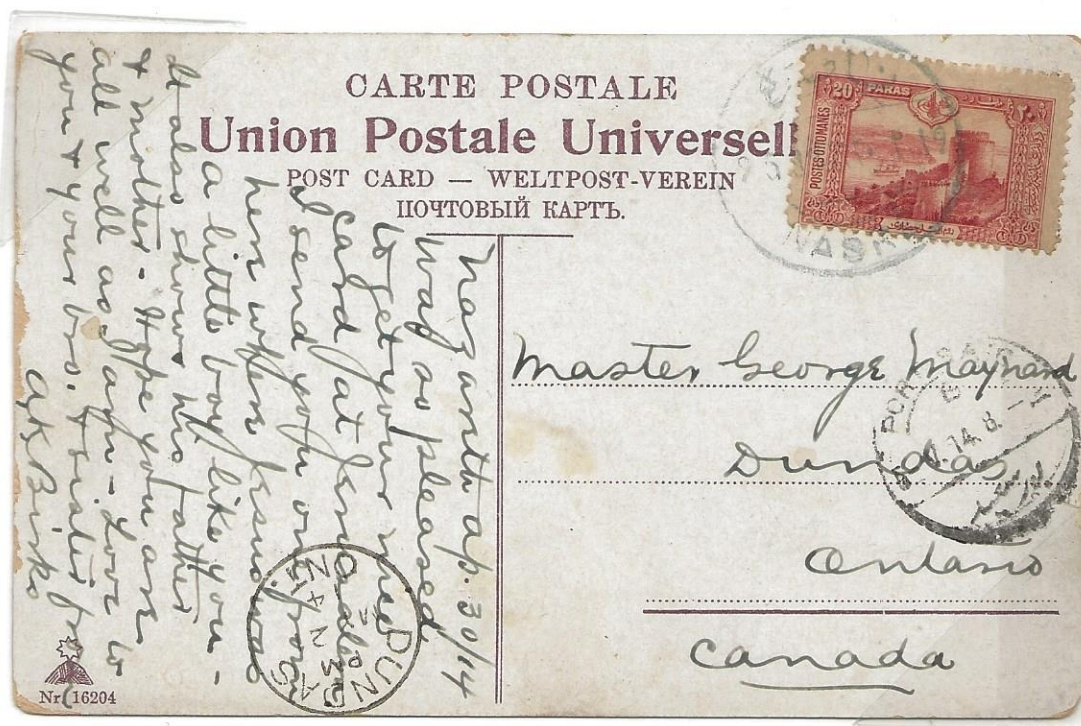 CARTE POSTALE
Union Postale Universell
POST CARD — WELTPOST-VEREIN
ПОЧТОВЫЙ КАРТЪ.
20 PARAS
POSTES OTTOMANES
Nazareth ap. 30/14
Was so pleased
to get your nice
card at
I send you one from
here when Jesus was
a little boy like you -
It also shows his father
& mother - Hope you are
all well as I am - Love to
you & your bro. & sister fr
A K Birks
Master George Maynard
Dundas
Ontario
Canada
PORT SAID
14. 8
DUNDAS
PM
JU 3
14
ONT
Nr. 16204